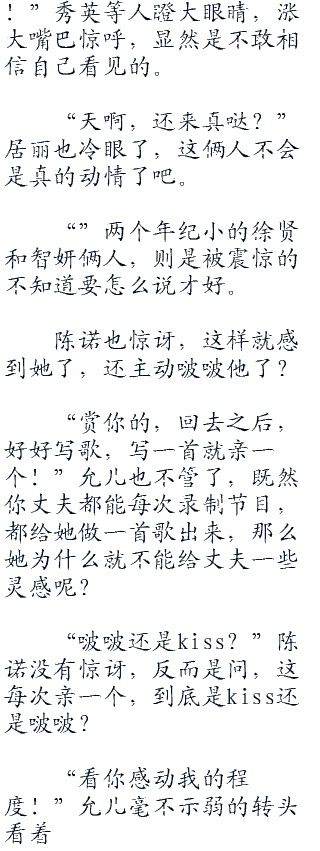 ！”秀英等人瞪大眼睛，涨
大嘴巴惊呼，显然是不敢相
信自己看见的。
“天啊，还来真哒？”
居丽也冷眼了，这俩人不会
是真的动情了吧。
“”两个年纪小的徐贤
和智妍俩人，则是被震惊的
不知道要怎么说才好。
陈诺也惊讶，这样就感
到她了，还主动啵啵他了？
“赏你的，回去之后，
好好写歌，写一首就亲一
个！”允儿也不管了，既然
你丈夫都能每次录制节目，
都给她做一首歌出来，那么
她为什么就不能给丈夫一些
灵感呢？
“啵啵还是kiss？”陈
诺没有惊讶，反而是问，这
每次亲一个，到底是kiss还
是啵啵？
“看你感动我的程
度！”允儿毫不示弱的转头
看着